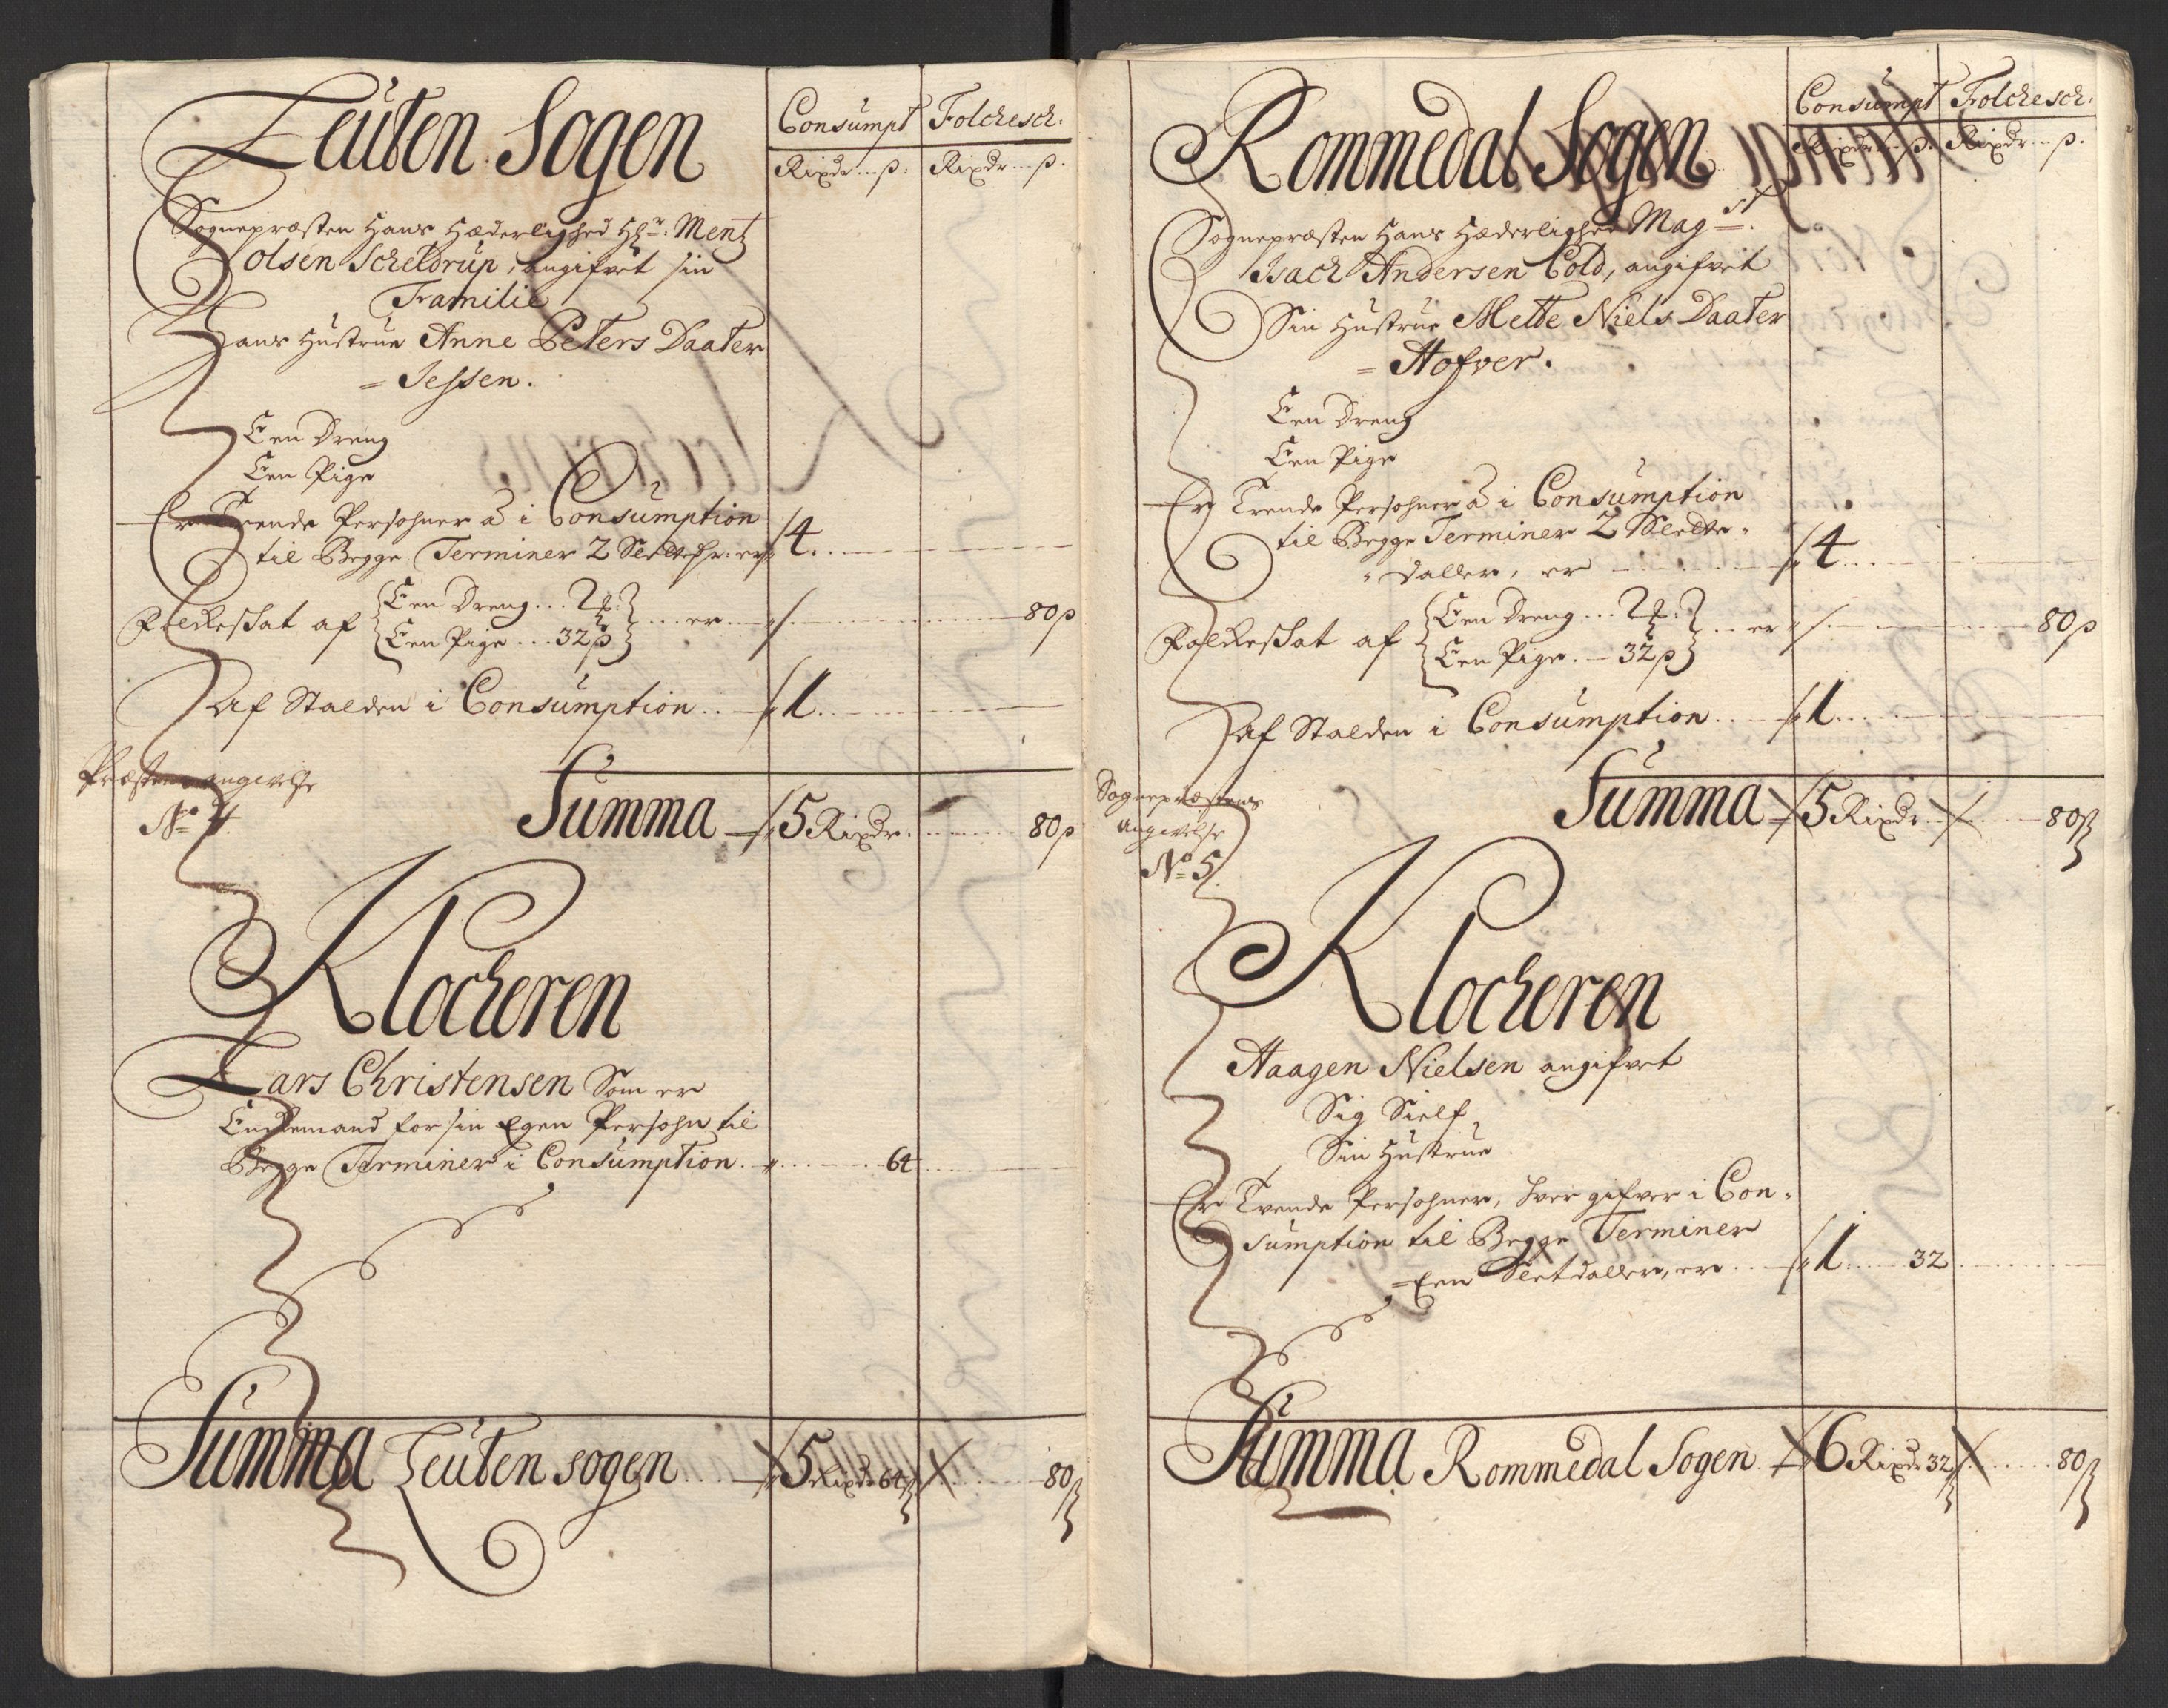 Leuten Sogen
Consumpt Folchesch:
Rixdr...ß. Rixdr...ß.
Sognepræsten Hans Hæderlighed Hr: Mentz
Olsen Scheldrup, angifvet sin
Familie
Hans Hustrue Anne Peters Daater
= Jessen.
Een Dreng
Een Pige
Er Trende Persohner à i Consumption
til Begge Terminer 2 Sletdlr: er 4.
Folkeskat af Een Dreng... er 80ß
Een Pige... 32ß
af Stalden i Consumption 1.
Præstens angivelse
No 4.
Summa 5 Rixdr. 80ß
Klocheren
Lars Christensen Som er
Enchemand for sin Egen Persohn til
Begge Terminer i Consumption 64
Summa Leuten sogen 5 Rixdr 64ß 80ß
Rommedal Sogen
Consumpt Folchesch:
Rixdr...ß. Rixdr...ß.
Sognepræsten Hans Hæderlighed Magst.
Isach Andersen Cold, angifvet
Sin Hustrue Mette Niels Daater
= Hofver.
Een Dreng
Een Pige
Er Trende Persohner à i Consumption
til Begge Terminer 2 Slette-
daller, er 4
Folkeskat af Een Dreng... er 80ß
Een Pige. 32ß
af Stalden i Consumption 1.
Sognepræstens
angivelse
No 5.
Summa 5 Rixdr 80ß
Klocheren
Haagen Nielsen angifvet
Sig Sielf,
Sin Hustrue
Er Tvende Persohner, hver gifver i Con-
sumption til Begge Terminer
= Een Sletdaller, er 1 32
Summa Rommedal Sogen 6 Rixdr 32ß 80ß